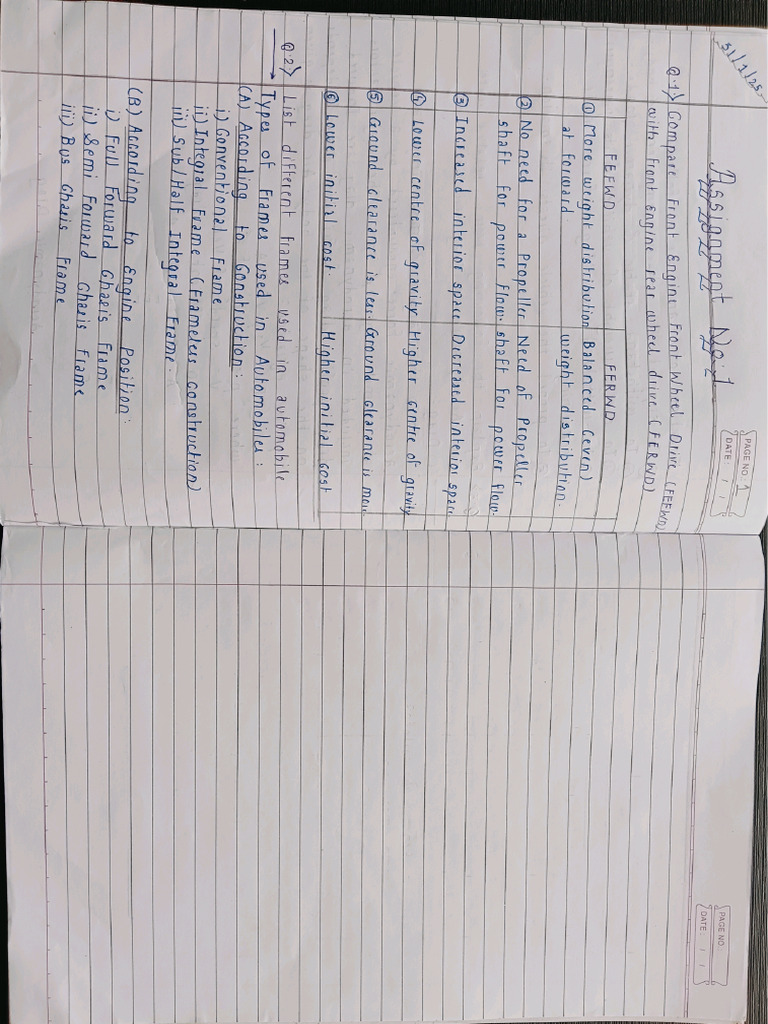 31/1/25.
PAGE NO: 1
DATE: / /
Assignment No:1
Q.1) Compare Front Engine Front Wheel Drive (FEFWD)
with front Engine rear wheel drive (FERWD)
FEFWD FERWD
① More weight distribution Balanced (even)
at forward weight distribution.
② No need for a Propeller Need of Propeller
shaft for power flow. shaft for power flow.
③ Increased interior space Decreased interior space
④ Lower centre of gravity Higher centre of gravity
⑤ Ground clearance is less Ground clearance is more
⑥ Lower initial cost. Higher initial cost
Q.2) List different frames used in automobile
→ Types of Frames used in Automobiles:
(A) According to Construction:
i) Conventional Frame
ii) Integral Frame (Frameless construction)
iii) Sub/Half Integral Frame.
(B) According to Engine Position:
i) Full Forward Chasis Frame
ii) Semi Forward Chasis Frame
iii) Bus Chasis Frame
PAGE NO:
DATE: / /